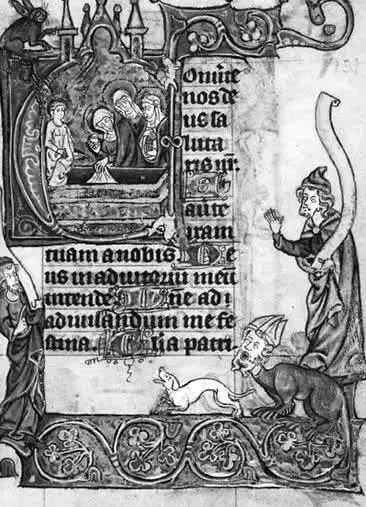 Conũte
nos de
us sa
luta
ris nr̃.
aũte
iram
tuam a nobis. De
us in adiutorium meũ
intende. Dñe ad
adiuuandum me fe
stina. Glia patri